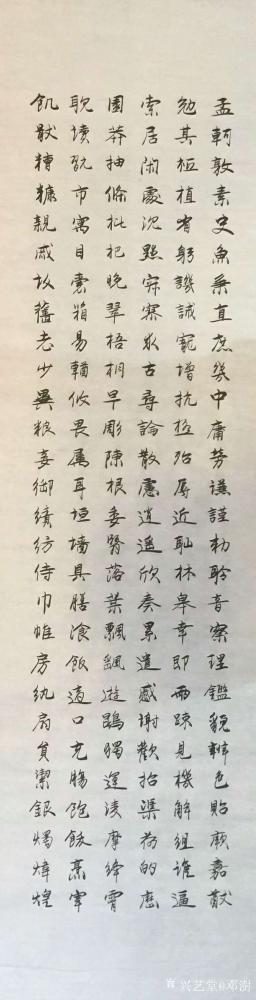 孟軻敦素史魚秉直庶幾中庸勞謙謹勅聆音察理鑑貌辨色貽厥嘉猷
勉其祗植省躬譏誡寵增抗極殆辱近耻林皋幸即兩疎見機解組誰逼
索居閑處沈默寂寥求古尋論散慮逍遥欣奏累遣感謝歡招渠荷的歷
園莽抽條枇杷晚翠梧桐早彫陳根委翳落葉飄颻遊鵾獨運凌摩絳霄
耽讀翫市寓目囊箱易輶攸畏属耳垣墻具膳飡飯適口充腸飽飫烹宰
飢猒糟糠親戚故舊老少異粮妾御績紡侍巾帷房紈扇員潔銀燭煒煌
兴艺堂@邓澍